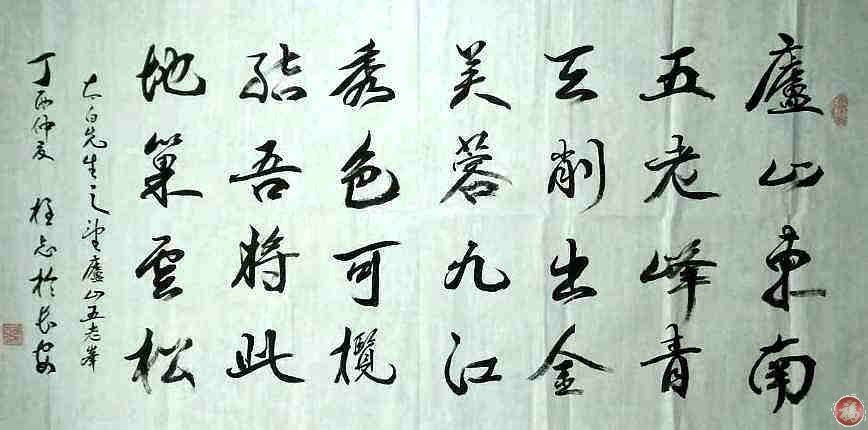 廬山東南
五老峰青
天削出金
芙蓉九江
秀色可攬
結吾將此
地巢雲松
太白先生之望廬山五老峯
丁酉仲夏 桂志於長安
福